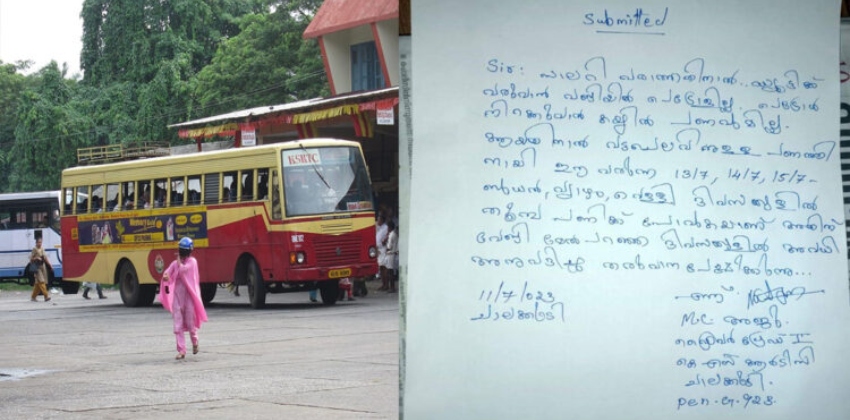 KSRTC
Submitted
Sir: സാലറി വരാത്തതിനാൽ.. ഡ്യൂട്ടിക്ക്
വരുവാൻ വണ്ടിയിൽ പെട്രോളില്ല. പെട്രോൾ
നിറക്കുവാൻ കയ്യിൽ പണവുമില്ല.
ആയതിനാൽ വട്ടചെലവിനുള്ള പണത്തി
നായി ഈ വരുന്ന 13/7, 14/7, 15/7-
വ്യാഴം, വെള്ളി ദിവസങ്ങളിൽ
പണിക്ക് പോവുകയാണ് അതിന്
വേണ്ടി മേൽപറഞ്ഞ ദിവസങ്ങളിൽ അവധി
അനുവദിച്ചു തരുവാനപേക്ഷിക്കുന്നു...
11/7/023
ചാലക്കുടി
എന്ന്
M.C. അജു.
ഡ്രൈവർ ഗ്രേഡ് II
കെ എസ് ആർടിസി
ചാലക്കുടി.
Pen. G. 923.